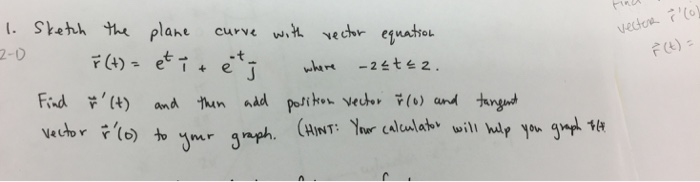 1. Sketch the plane curve with vector equation
2-1)
r⃗(t) = e^t i⃗ + e^-t j⃗ where -2≤t≤2.
Find r⃗'(t) and then add position vector r⃗(0) and tangent
vector r⃗'(0) to your graph. (HINT: Your calculator will help you graph r⃗(t
vector r⃗'(0)
r⃗(t) =